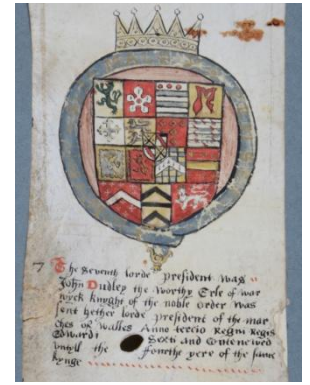 7 The seventh lorde president was
John Dudley the worthy Erle of war
wyck knyght of the noble order was
sent hether lorde president of the mar
ches of walles Anno tercio Regni Regis
Edwardi Sexti and contenewed
untyll the fourthe yere of the same
kynge